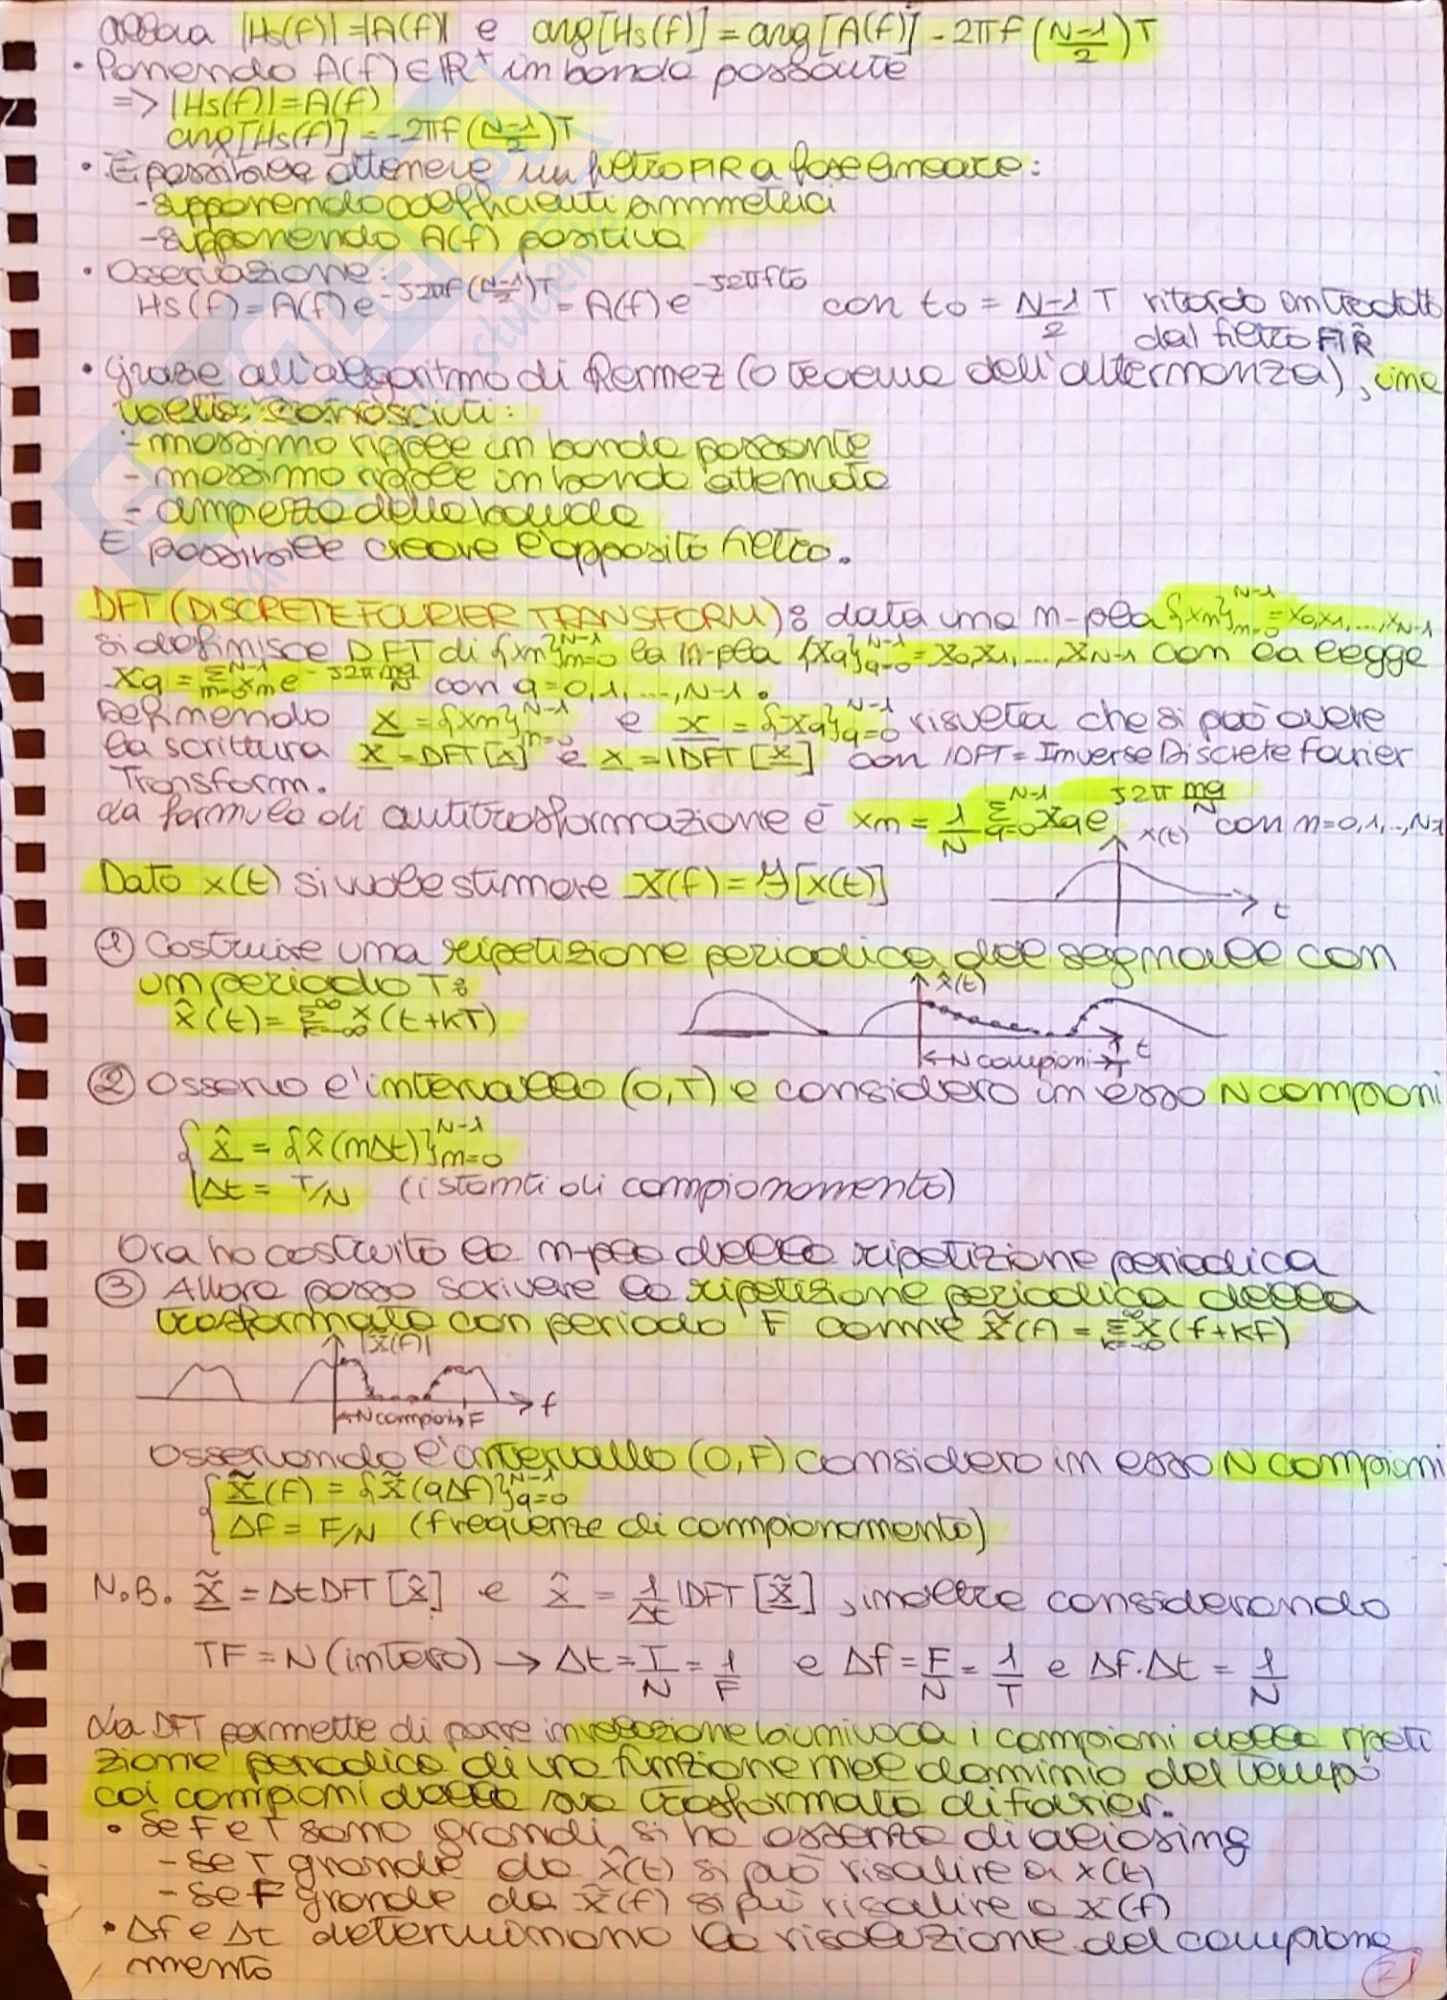 ossia |Hs(f)|=|A(f)| e arg[Hs(f)]=arg[A(f)]-2πf(N-1/2)T
• Ponendo A(f)∈ℝ⁺ in banda passante
=> |Hs(f)|=A(f)
arg[Hs(f)]=-2πf(N-1/2)T
• È possibile ottenere un filtro FIR a fase lineare:
-supponendo coefficienti simmetrici
-supponendo A(f) positiva
• Osservazione:
Hs(f)=A(f)e^-j2πf(N-1/2)T=A(f)e^-j2πft0 con t0=N-1/2 T ritardo introdotto
dal filtro FIR
• Grazie all'algoritmo di Remez (o teorema dell'alternanza), una
volta conosciuti:
- massimo ripple in banda passante
- massimo ripple in banda attenuata
- ampiezza della banda
È possibile creare l'apposito filtro.
DFT (DISCRETE FOURIER TRANSFORM): data una n-pla {xm}^N-1_m=0=x0,x1,...,xN-1
si definisce DFT di {xm}^N-1_m=0 la n-pla {Xq}^N-1_q=0=X0,X1,...,XN-1 con la legge
Xq=Σ^N-1_m=0 xm e^-j2π mq/N con q=0,1,...,N-1.
Definendo x={xm}^N-1_m=0 e X={Xq}^N-1_q=0 risulta che si può avere
la scrittura X=DFT[x] e x=IDFT[X] con IDFT=Inverse Discrete Fourier
Transform.
La formula di antitrasformazione è xm=1/N Σ^N-1_q=0 Xq e^j2π mq/N con m=0,1,..,N-1
x(t)
Dato x(t) si vuole stimare X(f)=F[x(t)]
t
① Costruire una ripetizione periodica del segnale con
un periodo T:
x̂(t)
x̂(t)=Σ^∞_k=-∞ x(t+kT)
N campioni T t
② Osservo l'intervallo (0,T) e considero in esso N campioni
{ x̂ = {x̂(mΔt)}^N-1_m=0
Δt = T/N (istanti di campionamento)
Ora ho costruito la n-pla della ripetizione periodica
③ Allora posso scrivere la ripetizione periodica della
trasformata con periodo F come X̃(f)=Σ^∞_k=-∞ X(f+kF)
|X̃(f)|
f
N campioni F
Osservando l'intervallo (0,F) considero in esso N campioni
{ X̃(f) = {X̃(qΔf)}^N-1_q=0
Δf = F/N (frequenze di campionamento)
N.B. X̃ = Δt DFT [x̂] e x̂ = 1/Δt IDFT [X̃], inoltre considerando
TF = N (intero) → Δt = T/N = 1/F e Δf = F/N = 1/T e Δf·Δt = 1/N
La DFT permette di porre in relazione biunivoca i campioni della ripeti
zione periodica di una funzione nel dominio del tempo
coi campioni della sua trasformata di fourier.
• Se F e T sono grandi, si ha assenza di aliasing
- Se T grande da x̂(t) si può risalire a x(t)
- Se F grande da X̃(f) si può risalire a X(f)
• Δf e Δt determinano la risoluzione del campiona
mento
21